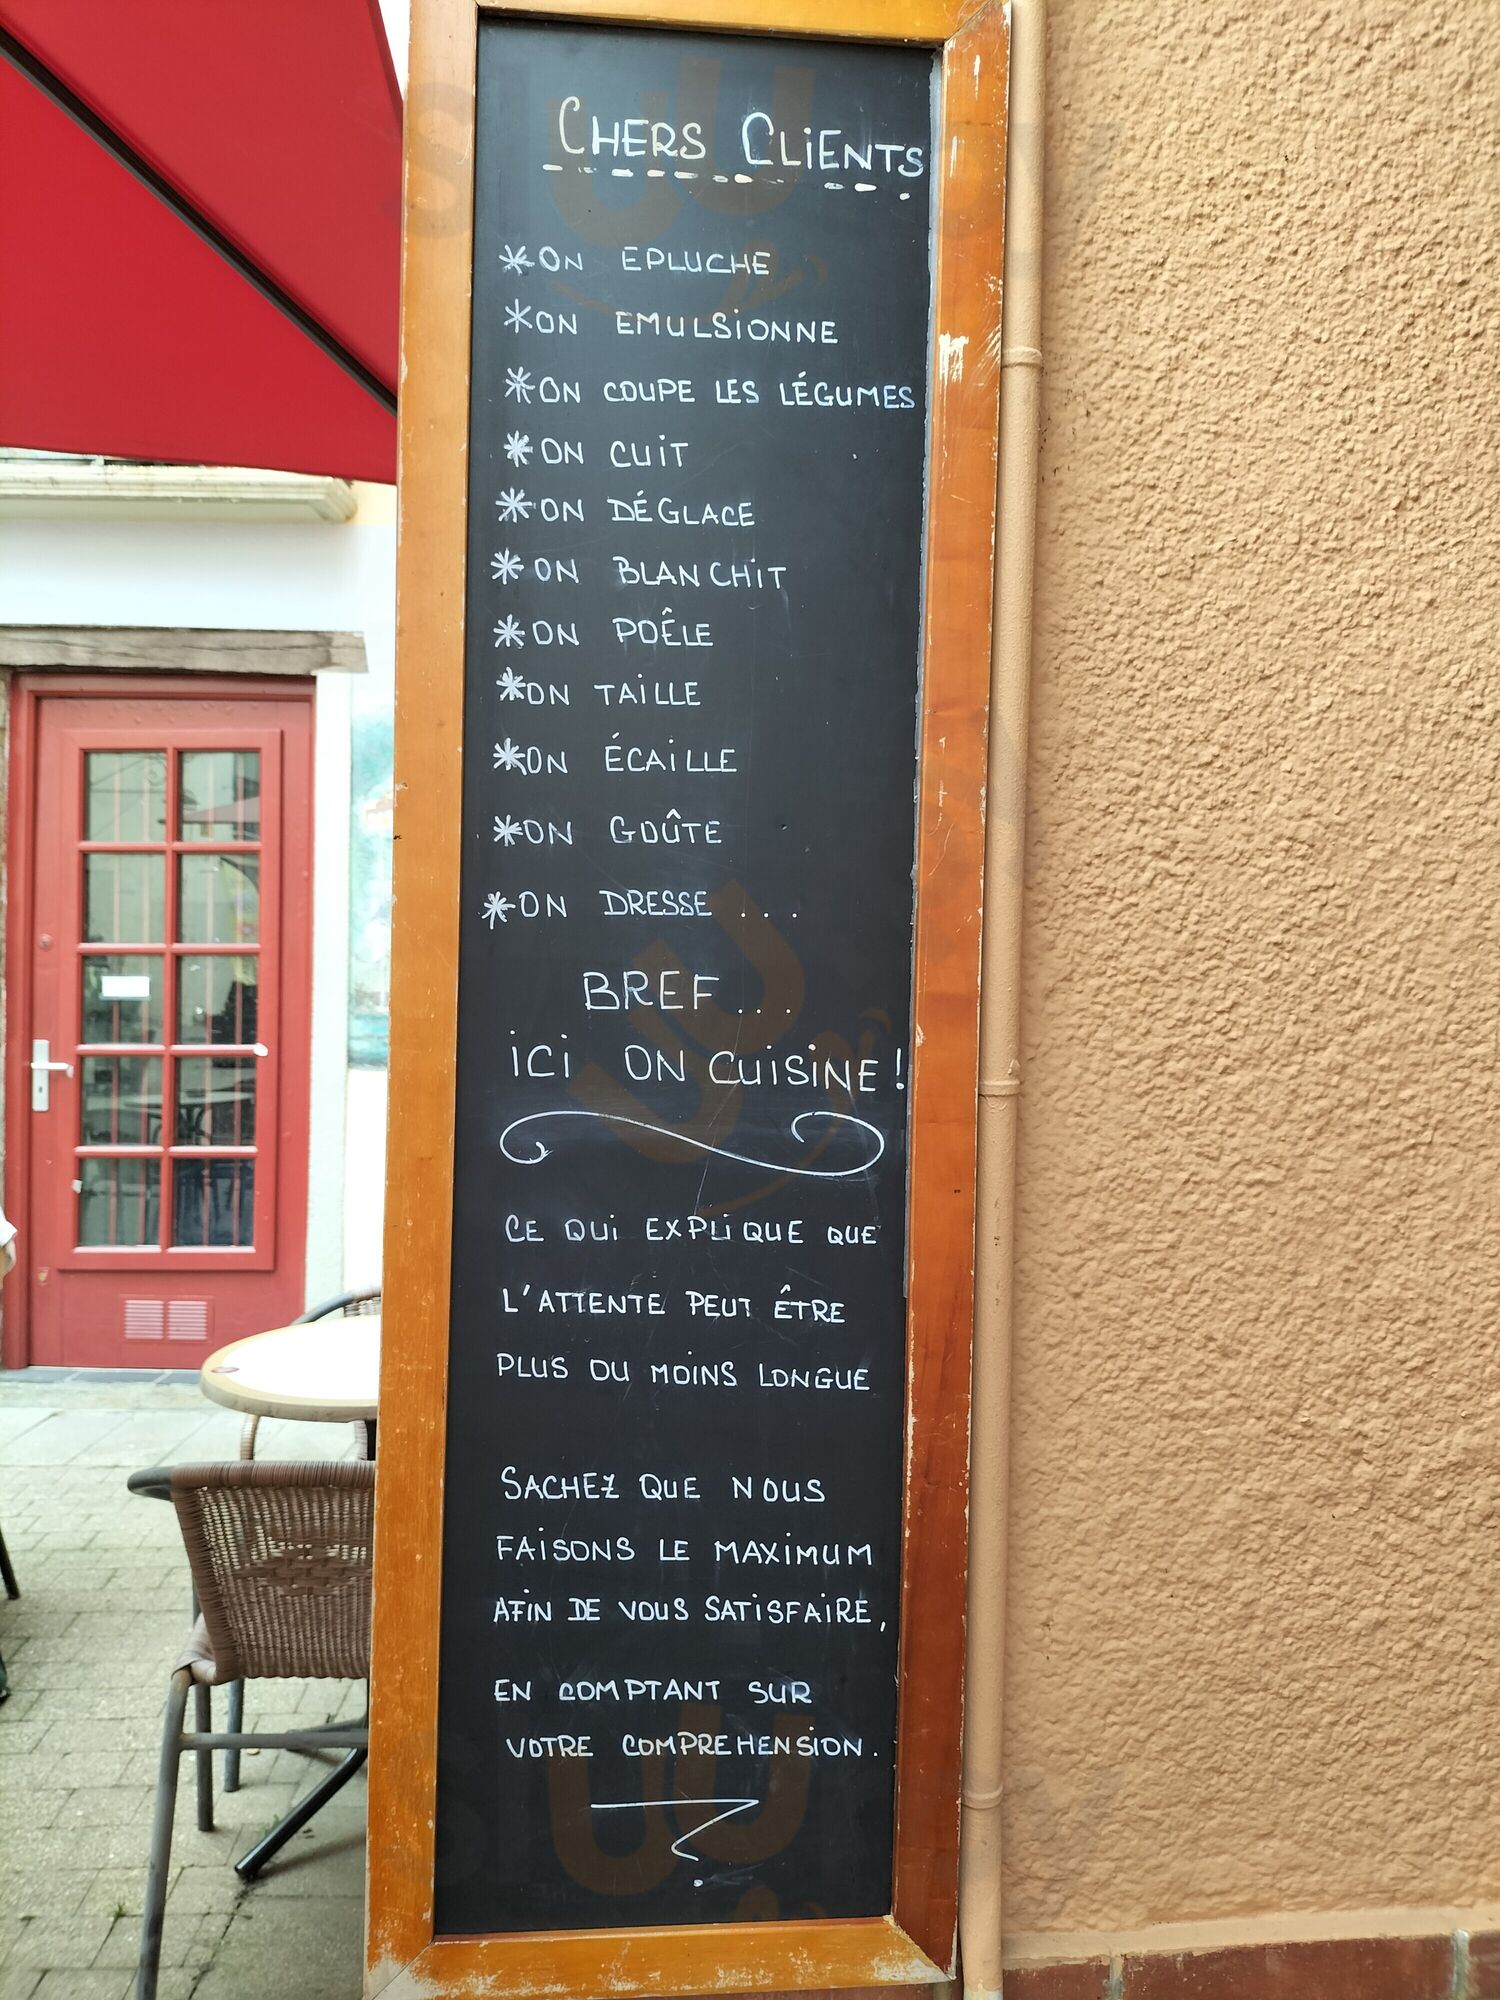 CHERS CLIENTS
*ON EPLUCHE
*ON EMULSIONNE
*ON COUPE LES LÉGUMES
*ON CUIT
*ON DÉGLACE
*ON BLANCHIT
*ON POÊLE
*ON TAILLE
*ON ÉCAILLE
*ON GOÛTE
*ON DRESSE ...
BREF...
ICI ON CUISINE!
CE QUI EXPLIQUE QUE
L'ATTENTE PEUT ÊTRE
PLUS OU MOINS LONGUE
SACHEZ QUE NOUS
FAISONS LE MAXIMUM
AFIN DE VOUS SATISFAIRE,
EN COMPTANT SUR
VOTRE COMPREHENSION.